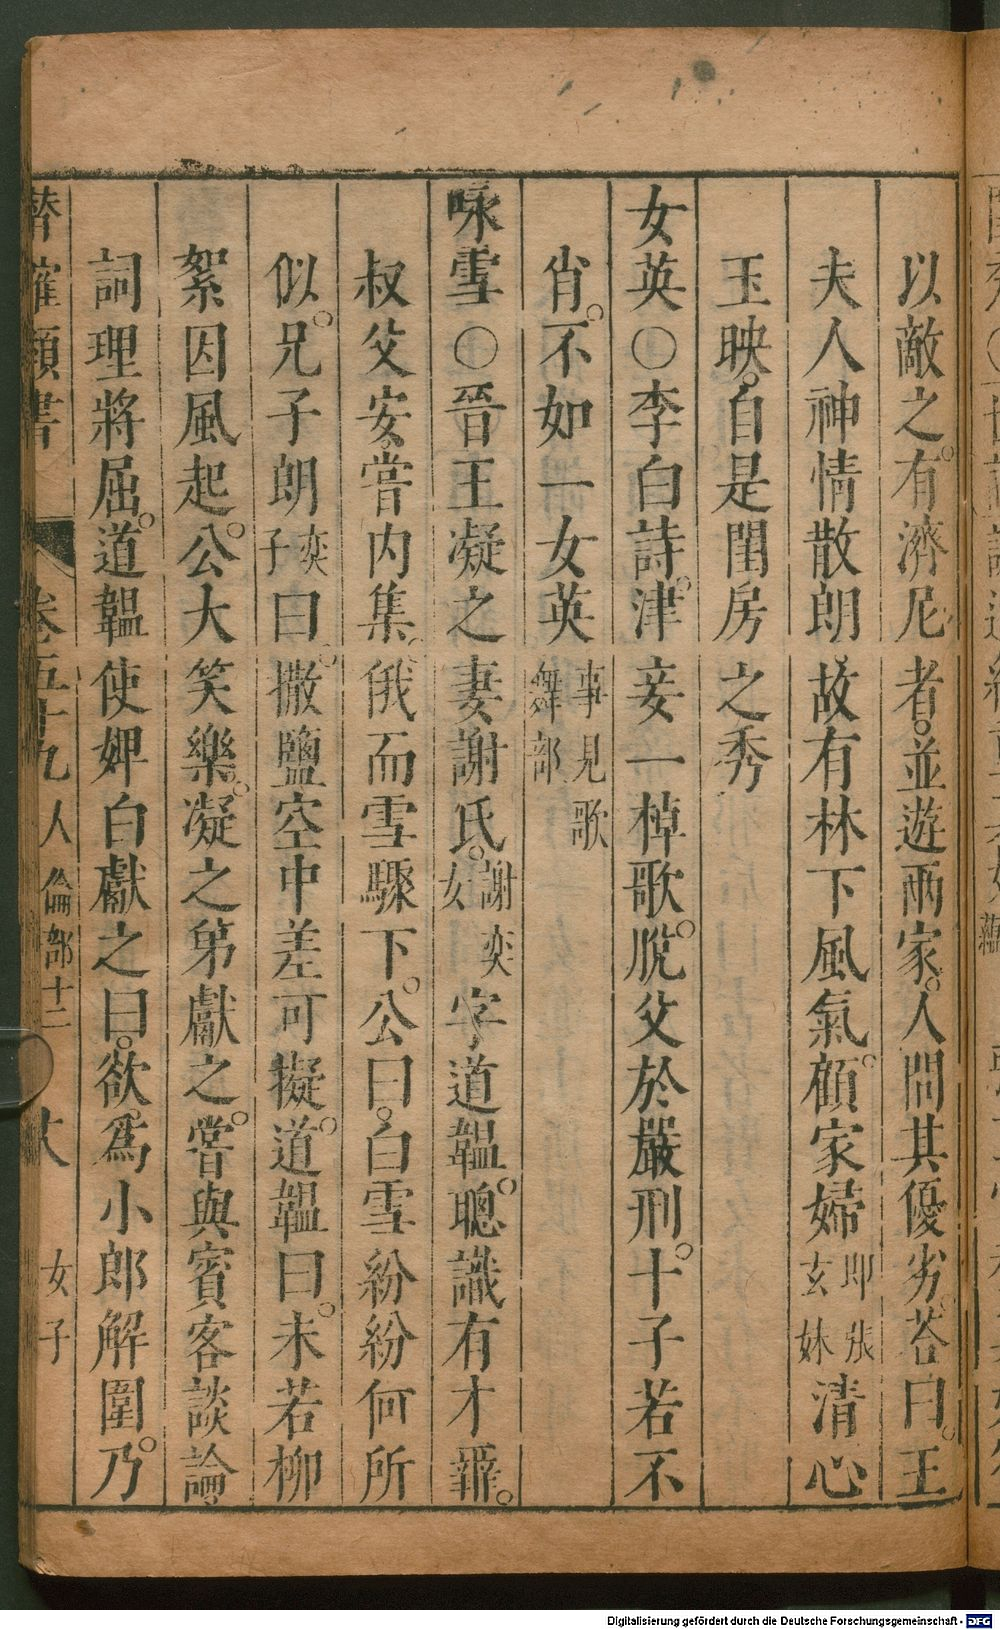 以敵之。有濟尼者。並遊兩家。人問其優劣。荅曰。王
夫人神情散朗。故有林下風氣。顧家婦即張玄妹清心
玉映。自是閨房之秀
女英〇李白詩。津妾一棹歌。脫父於嚴刑。十子若不
肖。不如一女英事見歌舞部
咏雪〇晉王凝之妻謝氏。謝奕女字道韞。聰識有才辯。
叔父安。嘗内集。俄而雪驟下。公曰。白雪紛紛何所
似。兄子朗奕子曰。撒鹽空中差可擬。道韞曰。未若柳
絮因風起。公大笑樂。凝之弟獻之。嘗與賓客談論。
詞理將屈。道韞使婢白獻之曰。欲爲小郎解圍。乃
潛確類書 卷五十九 人倫部十二 女子
Digitalisierung gefördert durch die Deutsche Forschungsgemeinschaft - DFG